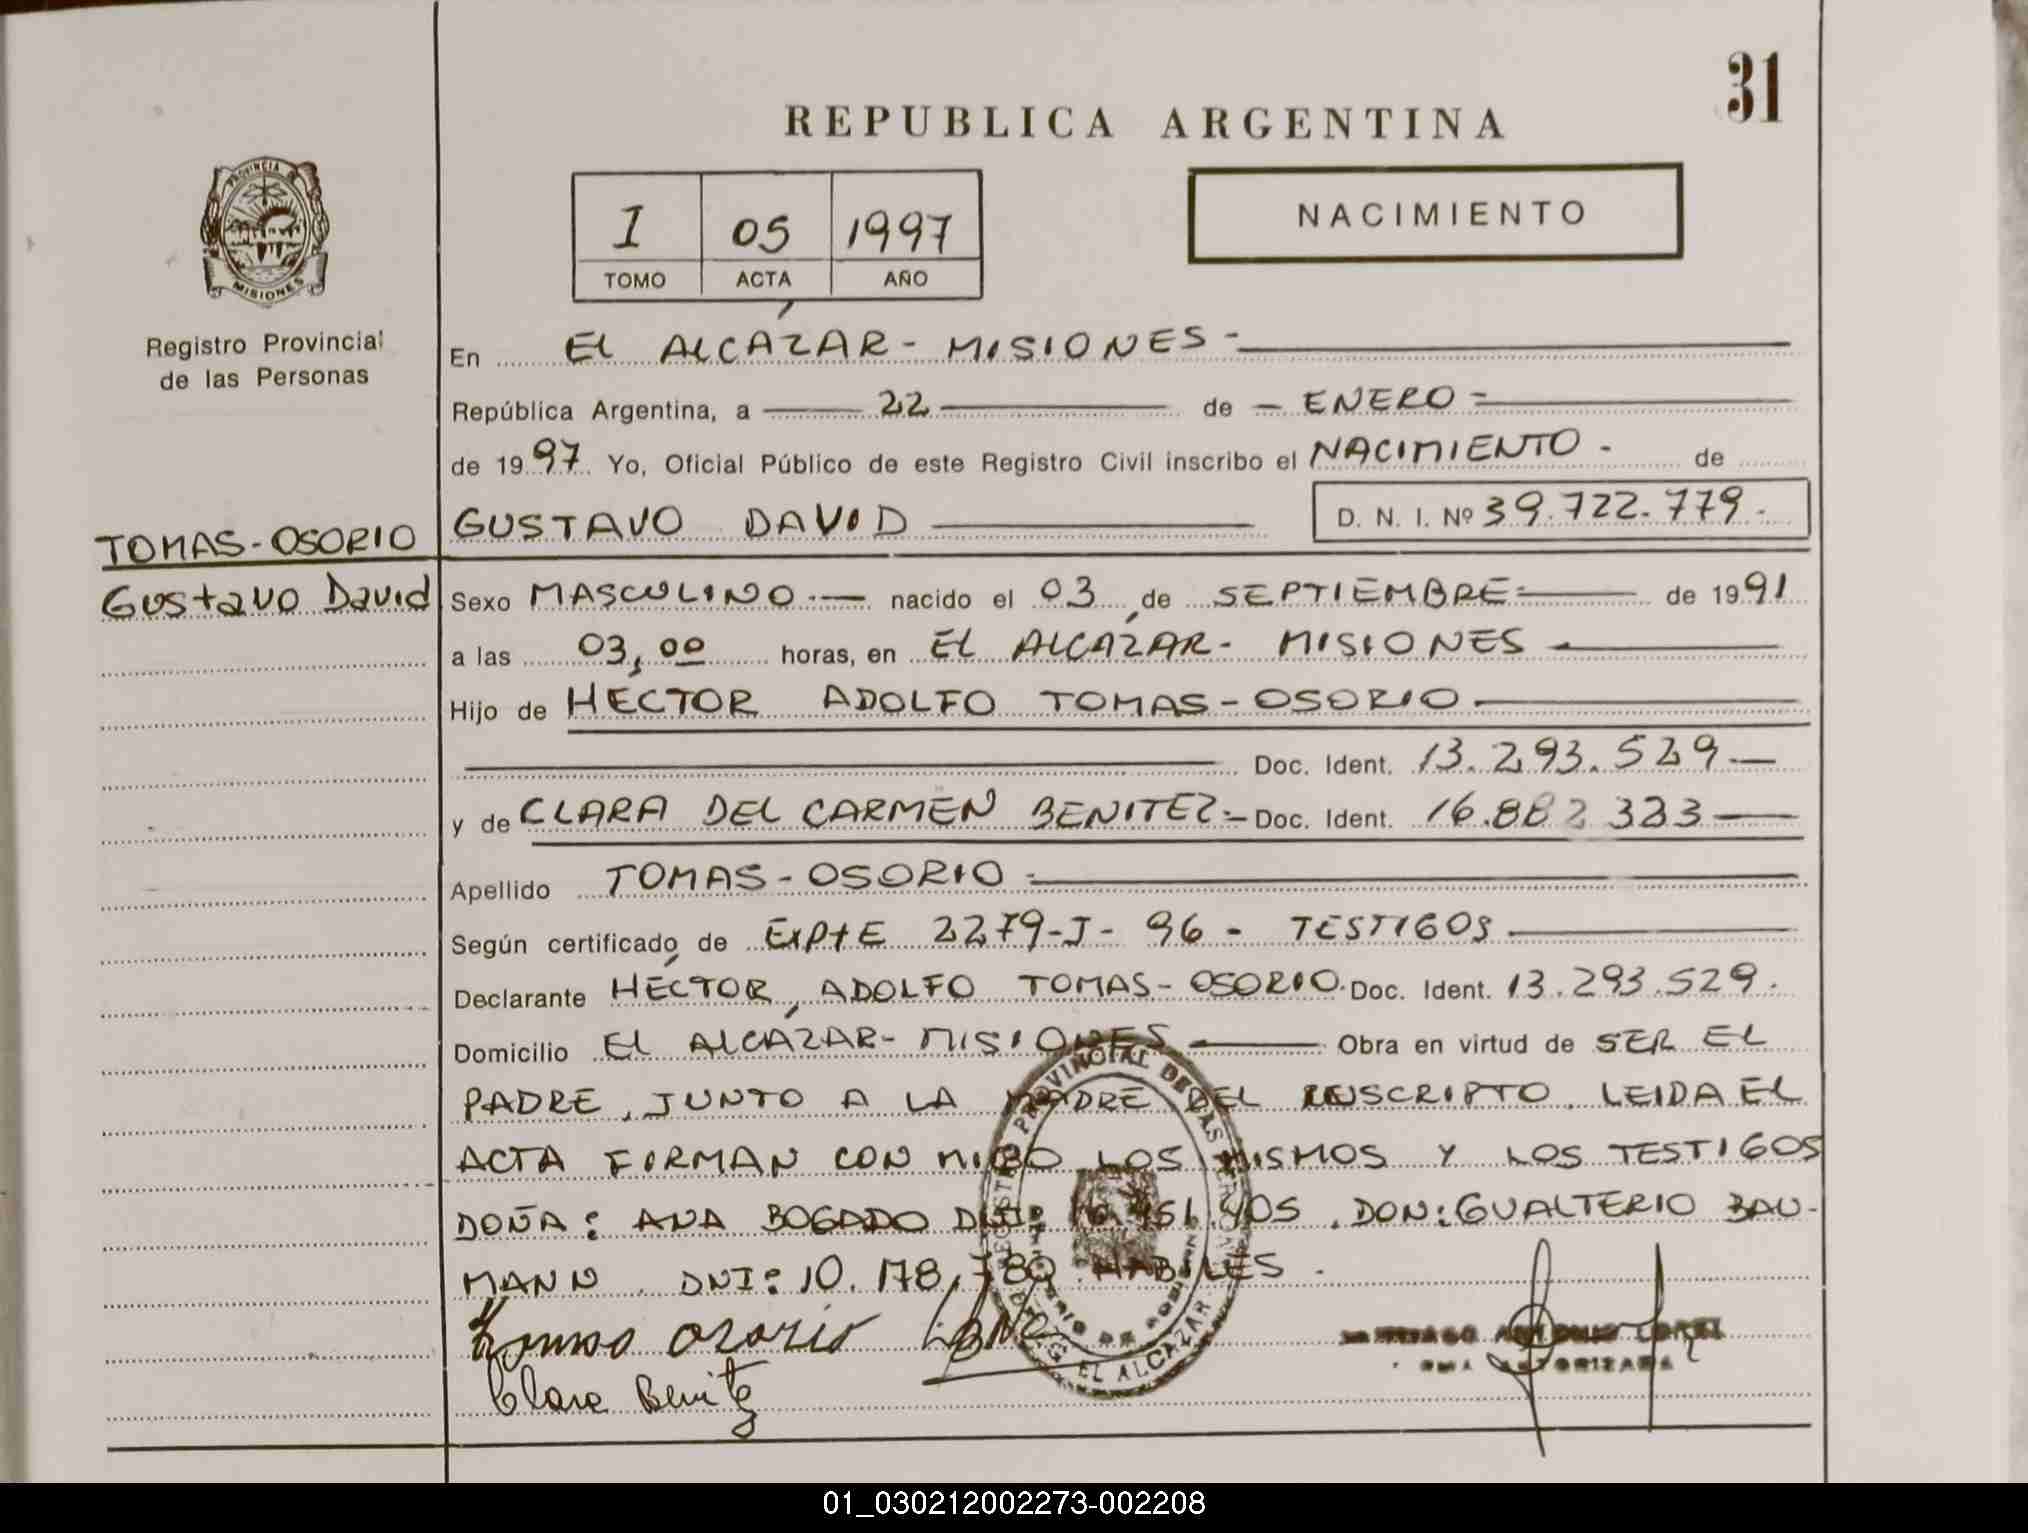 31
REPUBLICA ARGENTINA
PROVINCIA DE
MISIONES
Registro Provincial
de las Personas
I 05 1997
TOMO ACTA AÑO
NACIMIENTO
En EL ALCÁZAR - MISIONES -
República Argentina, a 22 de - ENERO -
de 1997 Yo, Oficial Público de este Registro Civil inscribo el NACIMIENTO - de
GUSTAVO DAVID D. N. I. Nº 39.722.779.
TOMAS-OSORIO
Gustavo David
Sexo MASCULINO.- nacido el 03 de SEPTIEMBRE de 1991
a las 03,00 horas, en EL ALCÁZAR - MISIONES
Hijo de HÉCTOR ADOLFO TOMAS-OSORIO
Doc. Ident. 13.293.529
y de CLARA DEL CARMEN BENITEZ.- Doc. Ident. 16.882 333
Apellido TOMAS-OSORIO
Según certificado de ExptE 2279-J-96 - TESTIGOS
Declarante HÉCTOR ADOLFO TOMAS-OSORIO. Doc. Ident. 13.293.529.
Domicilio EL ALCÁZAR - MISIONES Obra en virtud de SER EL
PADRE, JUNTO A LA MADRE DEL INSCRIPTO. LEIDA EL
ACTA FIRMAN CON MIGO LOS MISMOS Y LOS TESTIGOS
DOÑA: ANA BOGADO DNI: DON: GUALTERIO BAU-
MANN. DNI: 10.178.780. HABILES.
REGISTRO PROVINCIAL DE LAS PERSONAS
EL ALCAZAR
Tomas Osorio
Clara Benitez
01_030212002273-002208